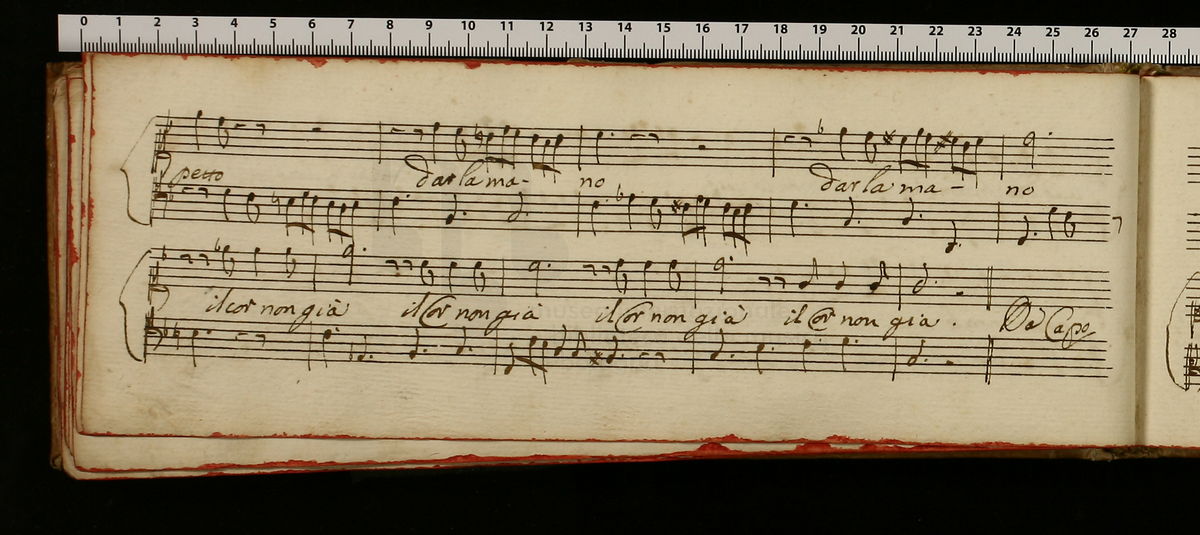 0 1 2 3 4 5 6 7 8 9 10 11 12 13 14 15 16 17 18 19 20 21 22 23 24 25 26 27 28
petto dar la ma- no dar la ma- no
il cor non già il Cor non già il Cor non già il Cor non già . Da Capo